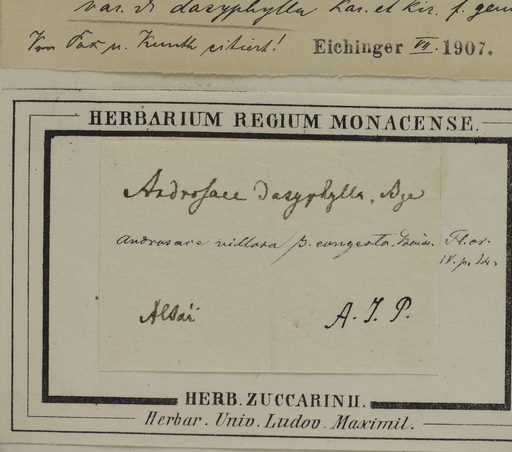 var. di dasyphylla Kar. et Kir. f. genu
Von Pax u. Knuth citiert! Eichinger VII. 1907.
HERBARIUM REGIUM MONACENSE.
Androsace dasyphylla, Bge
Androsace villosa β. congesta. Boiss. Fl. or.
IV. p. 14.
Altai
A. J. P.
HERB. ZUCCARINII.
Herbar. Univ. Ludov. Maximil.